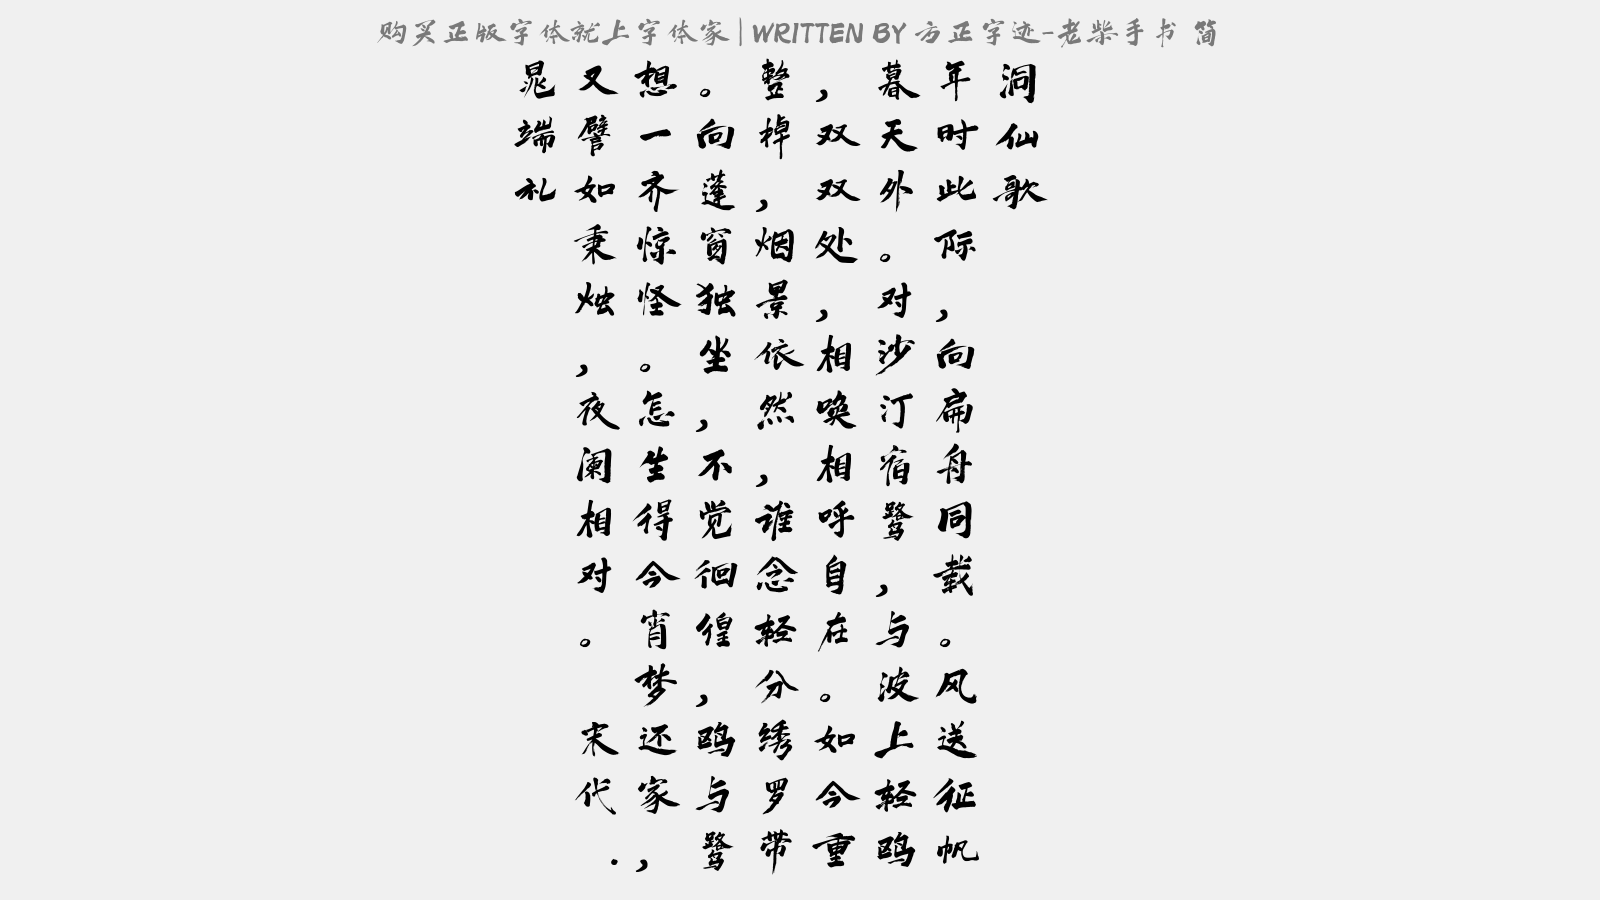 购买正版字体就上字体家|WRITTEN BY 方正字迹-老柴手书 简
洞仙歌
年时此际,向扁舟同载。风送征帆
暮天外。对沙汀宿鹭,与波上轻鸥
,双双处,相唤相呼自在。如今重
整,棹,烟景依然,谁念轻分绣罗带
。向蓬窗独坐,不觉徊徨,鸥与鹭
想一齐惊怪。怎生得今宵梦还家,
又譬如秉烛,夜阑相对。 宋代·
晁端礼